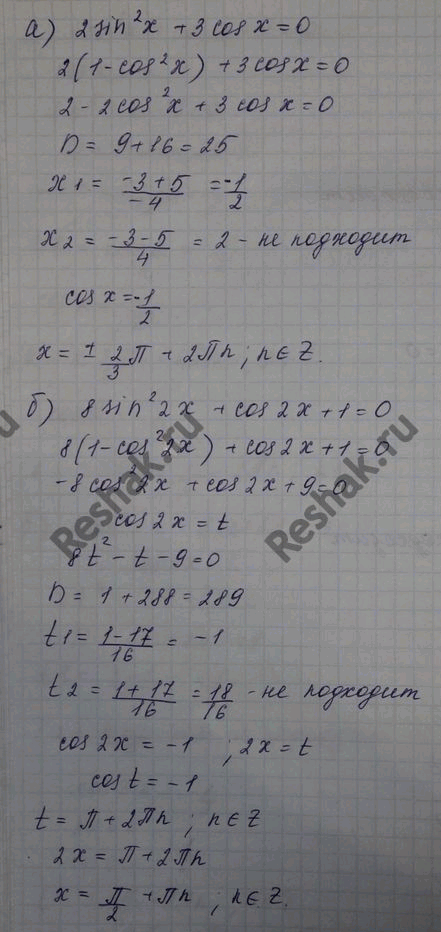 а) 2 sin²x + 3 cos x = 0
2(1 - cos²x) + 3 cos x = 0
2 - 2 cos²x + 3 cos x = 0
D = 9 + 16 = 25
x1 = (-3+5)/(-4) = -1/2
x2 = (-3-5)/4 = 2 - не подходит
cos x = -1/2
x = ± 2/3 π + 2πn ; n ∈ Z.
б) 8 sin²2x + cos 2x + 1 = 0
8(1 - cos²2x) + cos 2x + 1 = 0
-8 cos²2x + cos 2x + 9 = 0
cos 2x = t
8t² - t - 9 = 0
D = 1 + 288 = 289
t1 = (1-17)/16 = -1
t2 = (1+17)/16 = 18/16 - не подходит
cos 2x = -1 ; 2x = t
cos t = -1
t = π + 2πn ; n ∈ Z
2x = π + 2πn
x = π/2 + πn ; n ∈ Z.
Reshak.ru
Reshak.ru